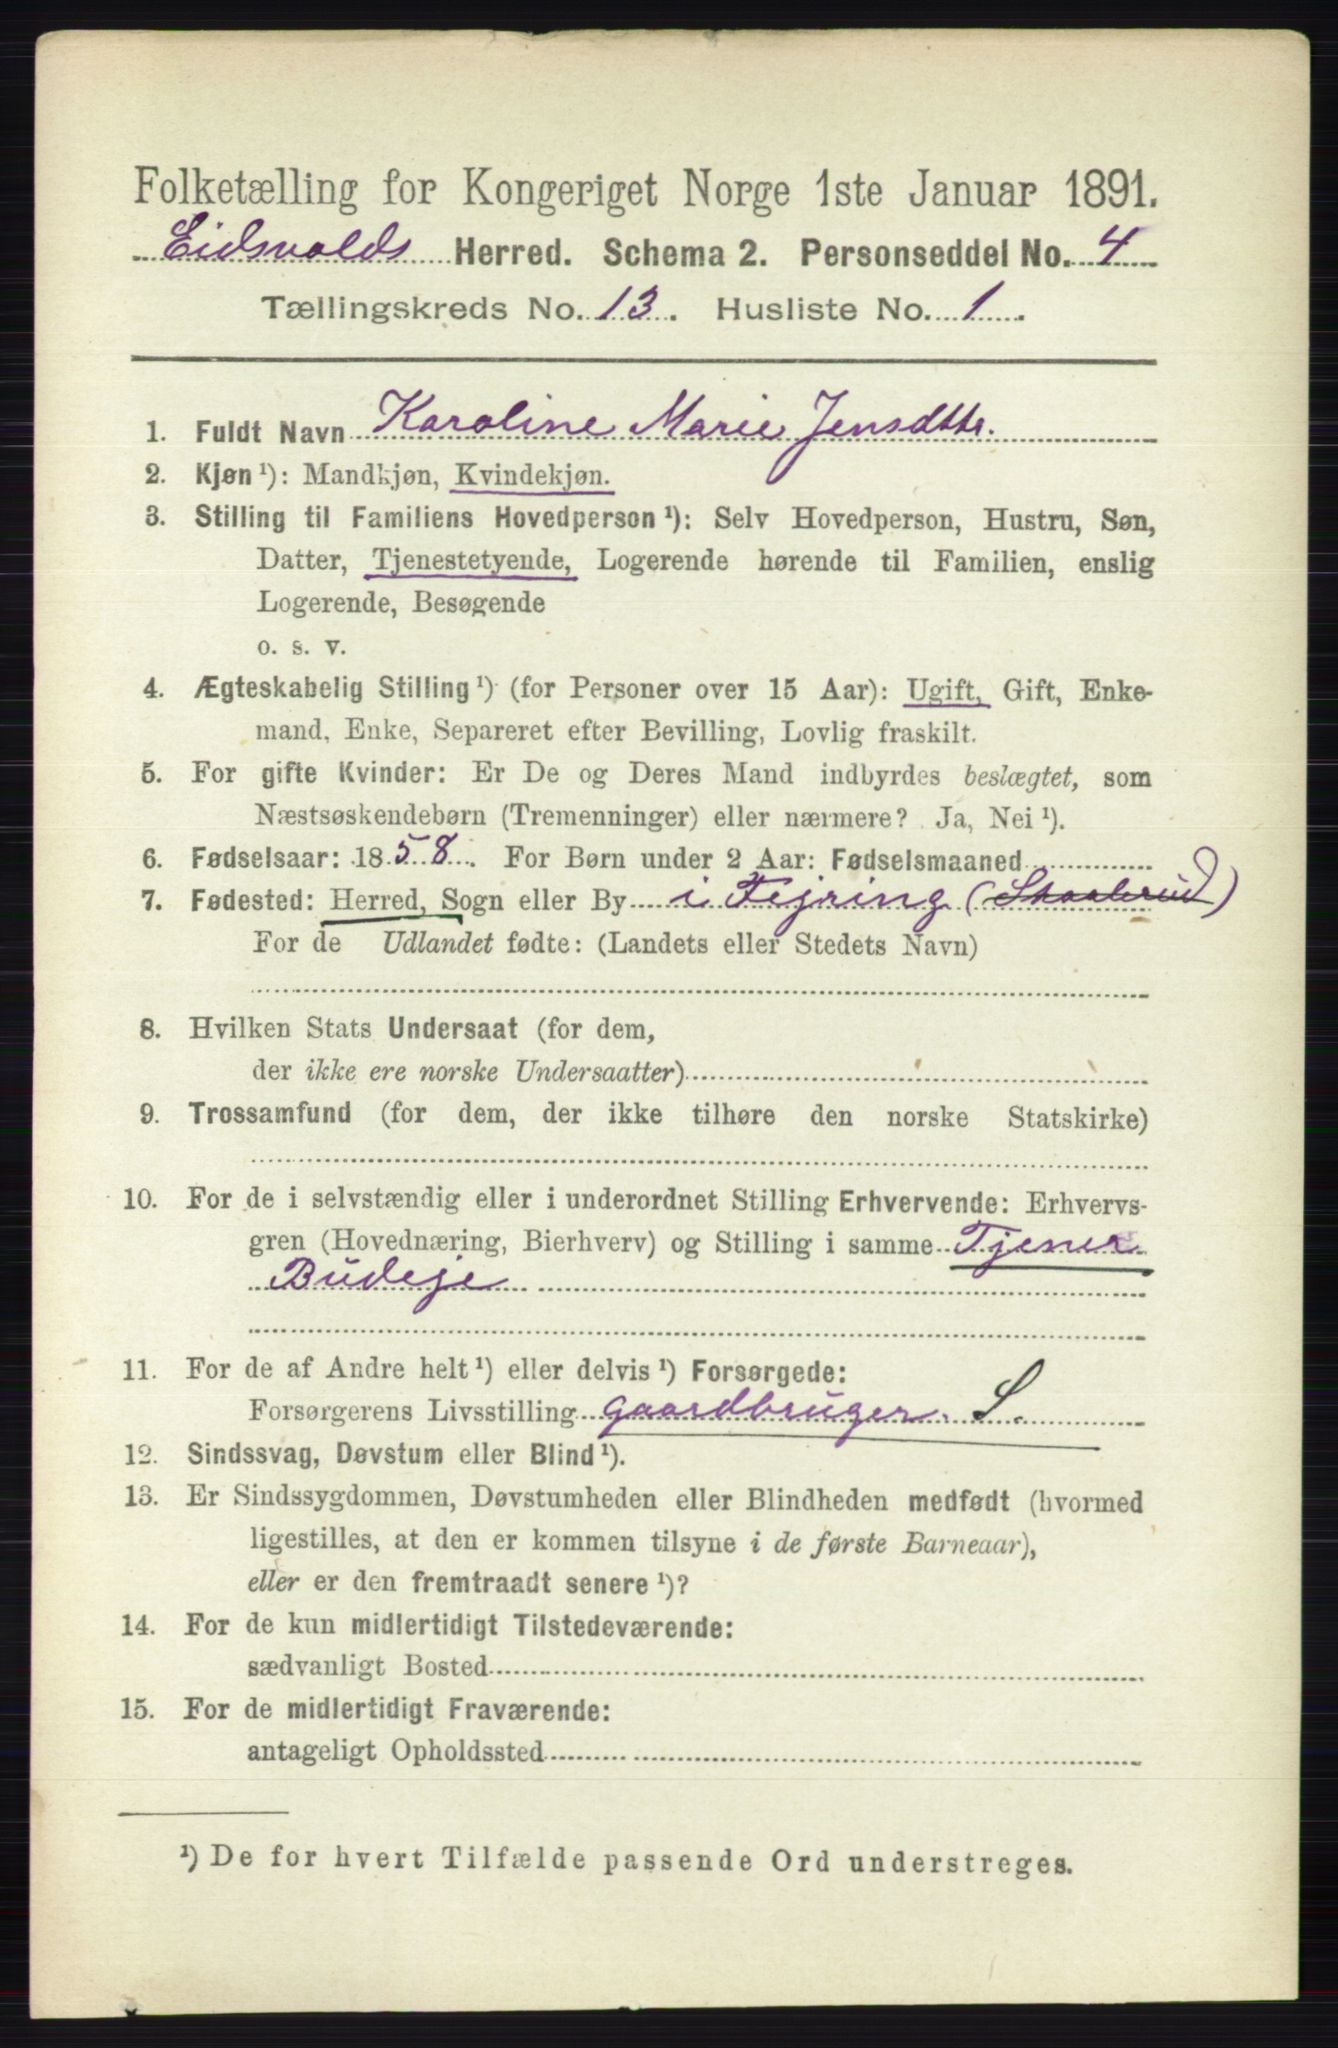 Folketælling for Kongeriget Norge 1ste Januar 1891.
Eidsvolds Herred. Schema 2. Personseddel No. 4
Tællingskreds No. 13. Husliste No. 1.
1. Fuldt Navn Karoline Marie Jensdttr.
2. Kjøn ¹): Mandkjøn, Kvindekjøn.
3. Stilling til Familiens Hovedperson ¹): Selv Hovedperson, Hustru, Søn,
Datter, Tjenestetyende, Logerende hørende til Familien, enslig
Logerende, Besøgende
o. s. v.
4. Ægteskabelig Stilling ¹) (for Personer over 15 Aar): Ugift, Gift, Enke-
mand, Enke, Separeret efter Bevilling, Lovlig fraskilt.
5. For gifte Kvinder: Er De og Deres Mand indbyrdes beslægtet, som
Næstsøskendebørn (Tremenninger) eller nærmere? Ja, Nei ¹).
6. Fødselsaar: 1858. For Børn under 2 Aar: Fødselsmaaned
7. Fødested: Herred, Sogn eller By i Fejring (Skaalerud)
For de Udlandet fødte: (Landets eller Stedets Navn)
8. Hvilken Stats Undersaat (for dem,
der ikke ere norske Undersaatter)
9. Trossamfund (for dem, der ikke tilhøre den norske Statskirke)
10. For de i selvstændig eller i underordnet Stilling Erhvervende: Erhvervs-
gren (Hovednæring, Bierhverv) og Stilling i samme Tjener
Budeje
11. For de af Andre helt ¹) eller delvis ¹) Forsørgede:
Forsørgerens Livsstilling gaardbruger. S.
12. Sindssvag, Døvstum eller Blind ¹).
13. Er Sindssygdommen, Døvstumheden eller Blindheden medfødt (hvormed
ligestilles, at den er kommen tilsyne i de første Barneaar),
eller er den fremtraadt senere ¹)?
14. For de kun midlertidigt Tilstedeværende:
sædvanligt Bosted
15. For de midlertidigt Fraværende:
antageligt Opholdssted
¹) De for hvert Tilfælde passende Ord understreges.